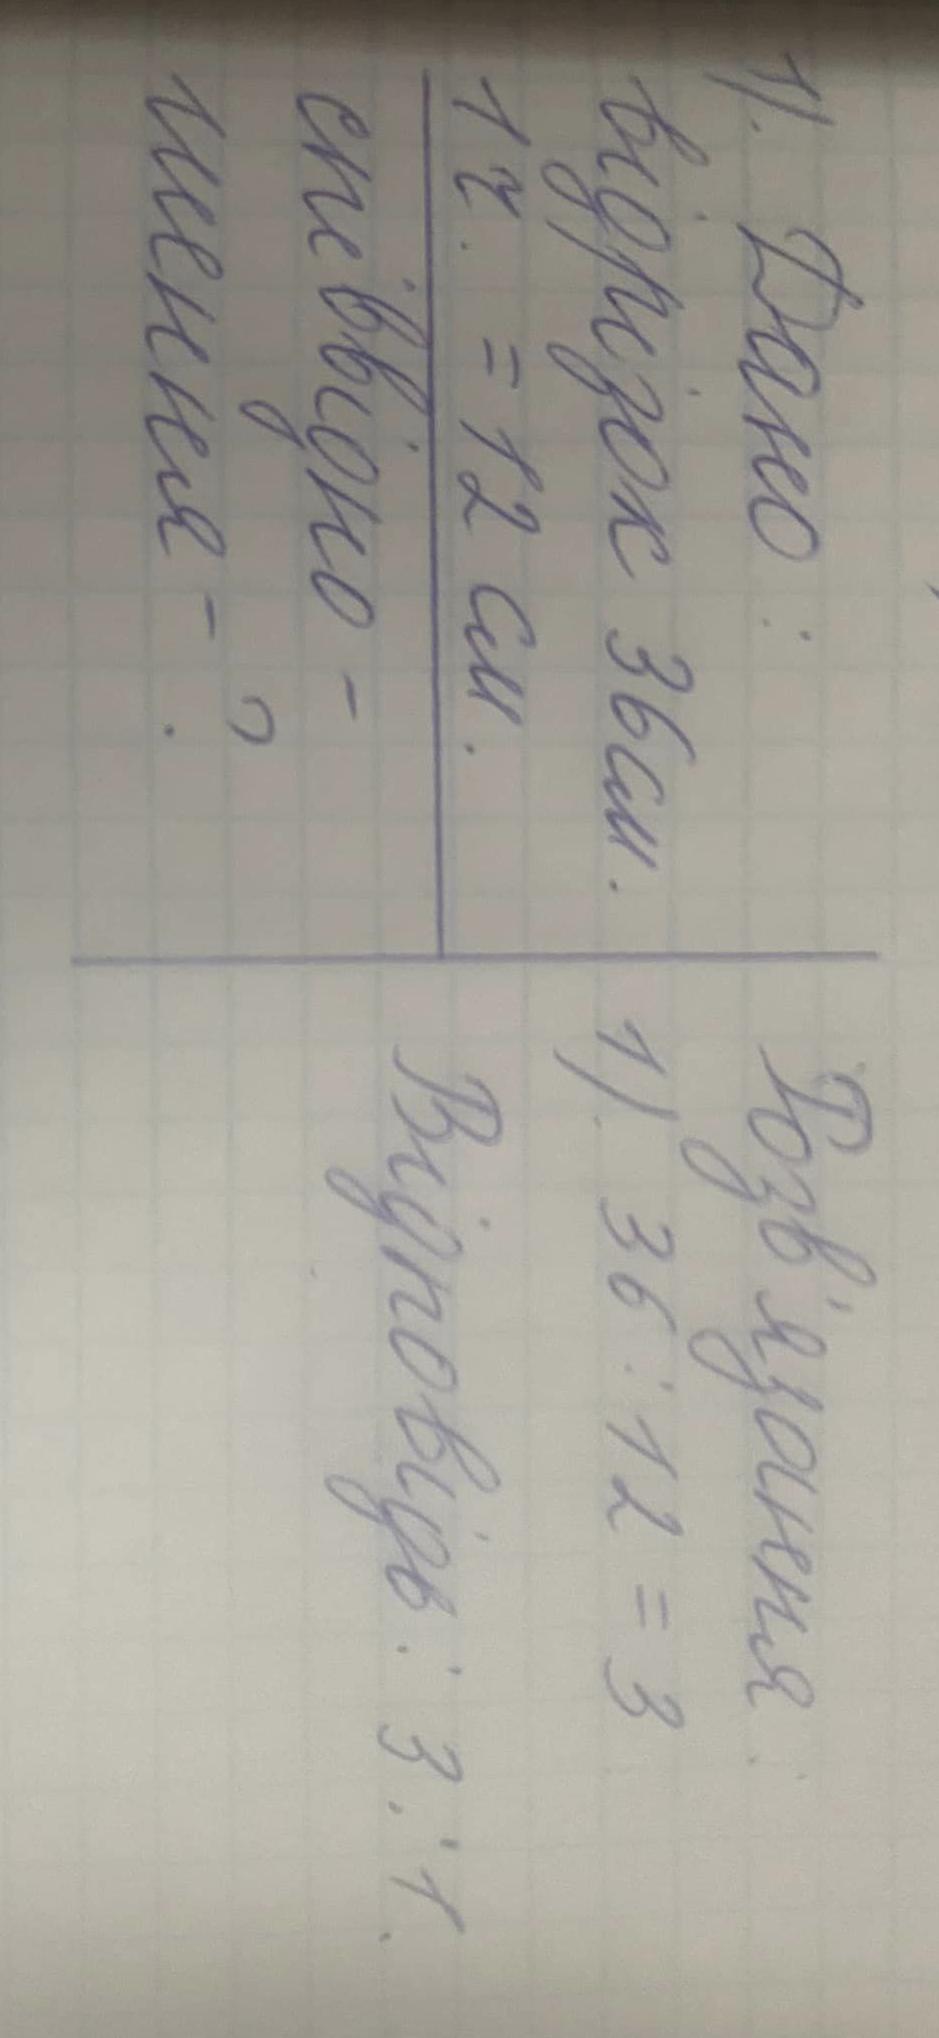 1). Дано:
відрізок 36см.
1 ч. = 12 см.
співвідно -
шення - ?
Розв'язання:
1). 36 : 12 = 3
Відповідь: 3 : 1.